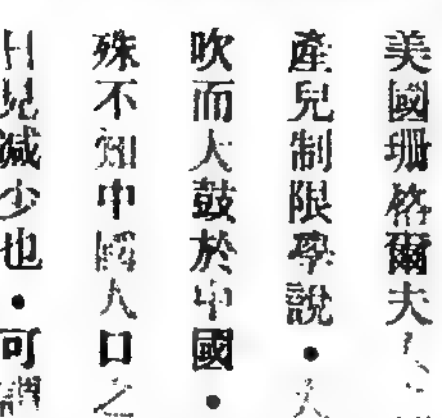 美國珊格爾夫人
產兒制限學說．
吹而大鼓於中國．
殊不知中國人口之
日見減少也．可謂